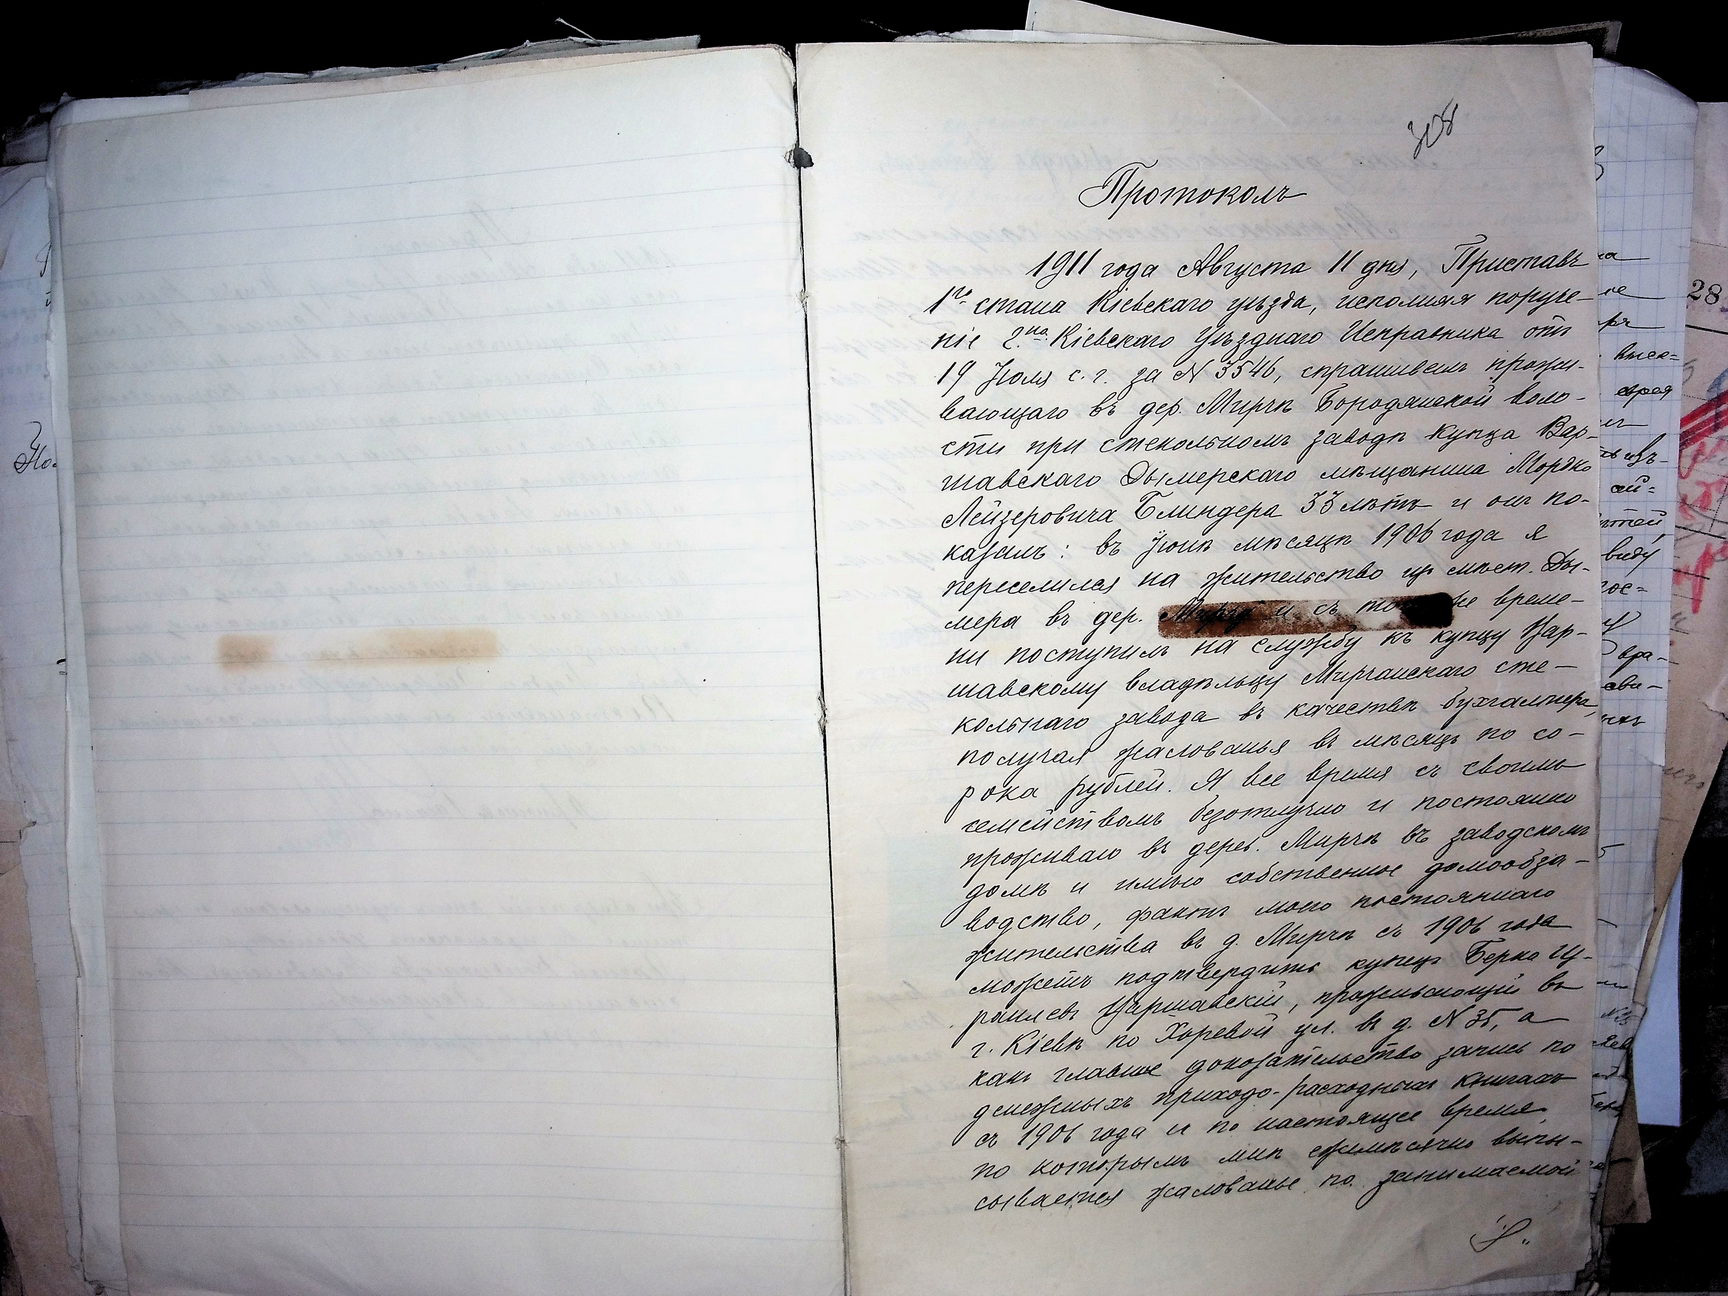 308
Протоколъ
1911 года Августа 11 дня, Приставъ
1го стана Кіевскаго уѣзда, исполняя поруче-
ніе 2.на Кіевскаго Уѣзднаго Исправника отъ
19 Іюля с. г. за N 3546, спрашивалъ прожи-
вающаго въ дер. Мирчѣ Бородянской воло-
сти при стекольномъ заводѣ купца Вар-
шавскаго Дымерскаго мѣщанина Мордко
Лейзеровича Блиндера 33 лѣтъ и онъ по-
казалъ: въ Іюнѣ мѣсяцѣ 1906 года я
переселился на жительство изъ мѣст. Ды-
мера въ дер. Мирчу и съ того же време-
ни поступилъ на службу къ купцу Вар-
шавскому владѣльцу Мирчанскаго сте-
кольнаго завода въ качествѣ бухгалтера,
получая жалованья въ мѣсяцъ по со-
рока рублей. Я все время съ своимъ
семействомъ безотлучно и постоянно
проживаю въ дерев. Мирчѣ въ заводскомъ
домѣ и имѣю собственное домообза-
водство, фактъ моего постояннаго
жительства въ д. Мирчѣ съ 1906 года
можетъ подтвердить купецъ Берко Из-
раилевъ Варшавскій, проживающій въ
г. Кіевѣ по Хоревой ул. въ д. N 35, а
какъ главное доказательство запись по
денежныхъ приходо-расходныхъ книгахъ
съ 1906 года и по настоящее время
по которымъ мнѣ ежемѣсячно выпи-
сывается жалованье по занимаемой
28